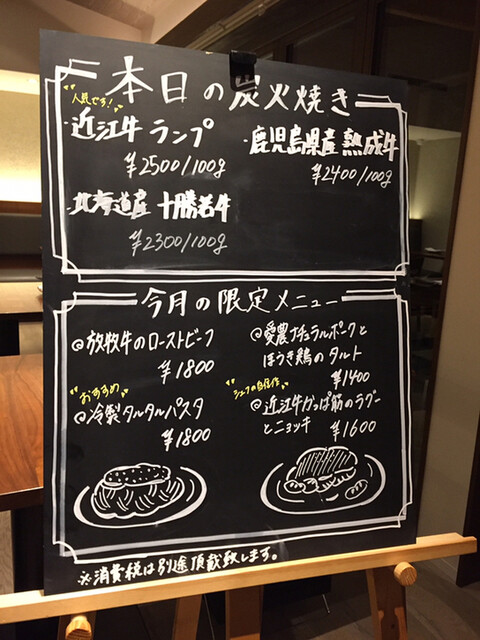 本日の炭火焼き
人気です!
・近江牛 ランプ
¥2500/100g
・鹿児島県産 熟成牛
¥2400/100g
・北海道産 十勝若牛
¥2300/100g
今月の限定メニュー
@放牧牛のローストビーフ
¥1800
おすすめ
@冷製タルタルパスタ
¥1800
@愛農ナチュラルポークと
ほうき鶏のタルト
¥1400
シェフの自信作
@近江牛かっぱ筋のラグー
とニョッキ ¥1600
※消費税は別途頂戴致します。